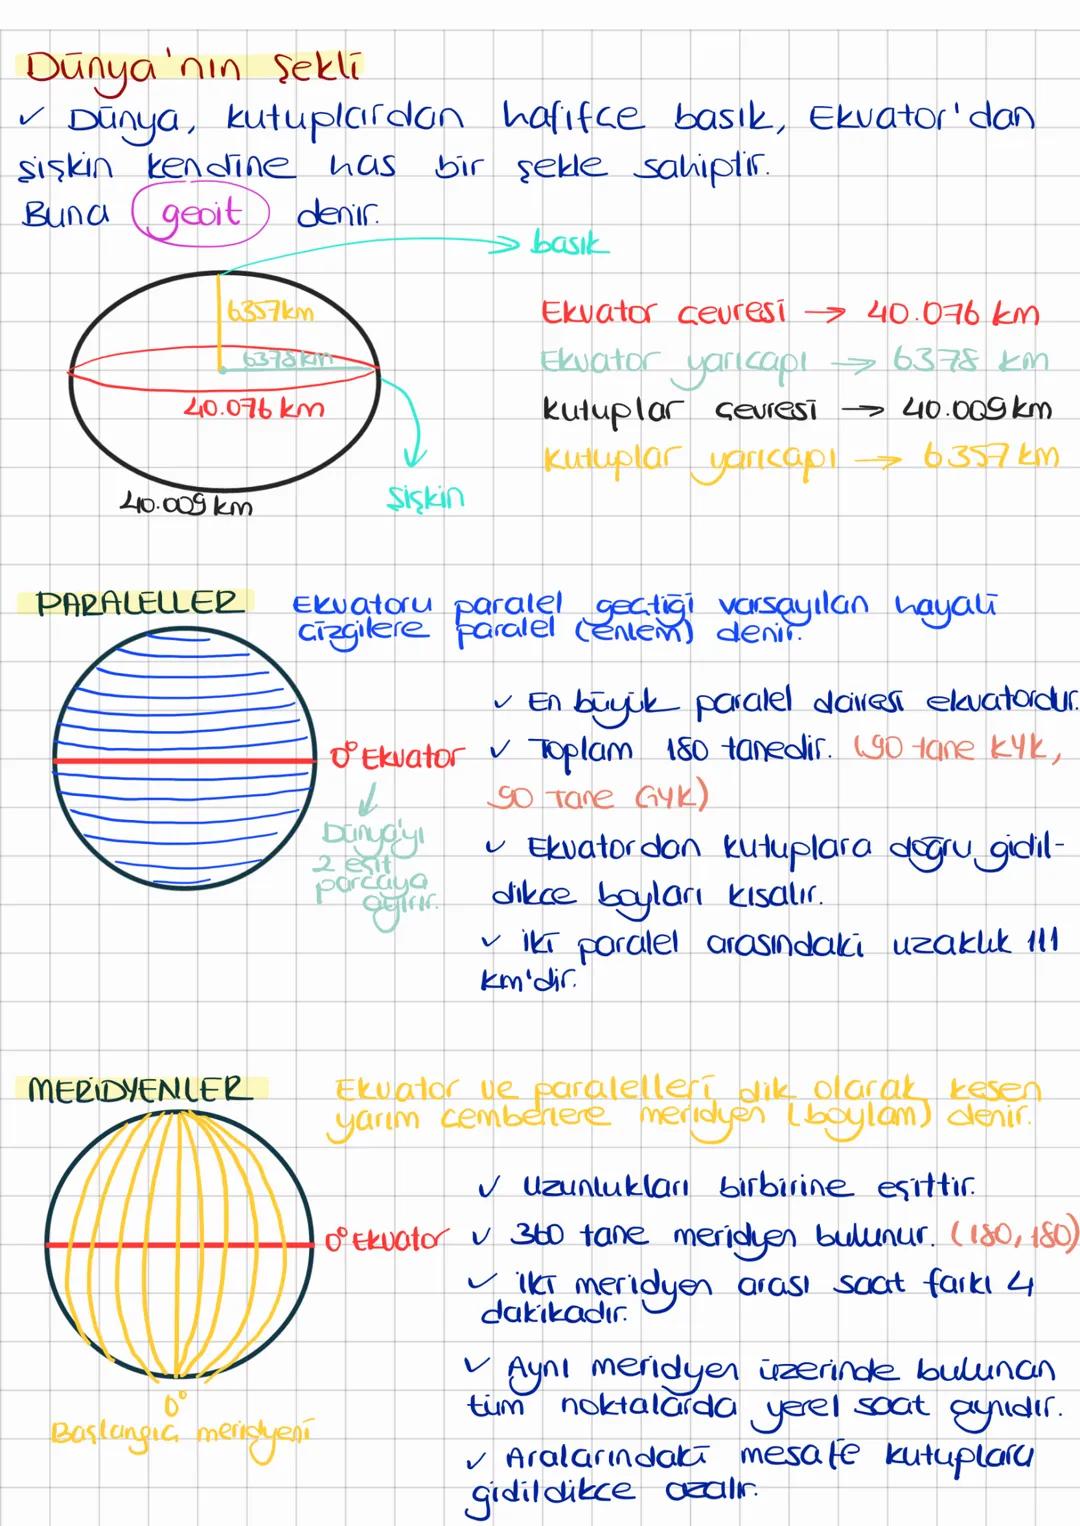 Dünya'nın Şekli
✓ Dünya, kutuplardan hafifçe basık, Ekvator'dan
şişkin kendine has bir şekle sahiptir.
Buna geoit denir.
basık
6357km
6378km
40.076 km
40.009 km
şişkin
Ekvator çevresi → 40.076 km
Ekvator yarıçapı → 6378 km
kutuplar çevresi → 40.009 km
kutuplar yarıçapı → 6357 km
PARALELLER
Ekvatoru paralel geçtiği varsayılan hayali
çizgilere paralel (enlem) denir.
0° Ekvator
Dünya'yı
2 eşit
parçaya
ayırır.
✓ En büyük paralel dairesi ekvatordur.
✓ Toplam 180 tanedir. (90 tane KYK,
90 Tane GYK)
✓ Ekvatordan kutuplara doğru gidil-
dikçe boyları kısalır.
✓ iki paralel arasındaki uzaklık 111
km'dir.
MERİDYENLER
Ekvator ve paralelleri dik olarak kesen
yarım çemberlere meridyen (boylam) denir.
0° Ekvator
0°
Başlangıç meridyeni
✓ Uzunlukları birbirine eşittir.
✓ 360 tane meridyen bulunur. (180, 180)
✓ iki meridyen arası saat farkı 4
dakikadır.
✓ Aynı meridyen üzerinde bulunan
tüm noktalarda yerel saat aynıdır.
✓ Aralarındaki mesafe kutuplara
gidildikçe azalır.